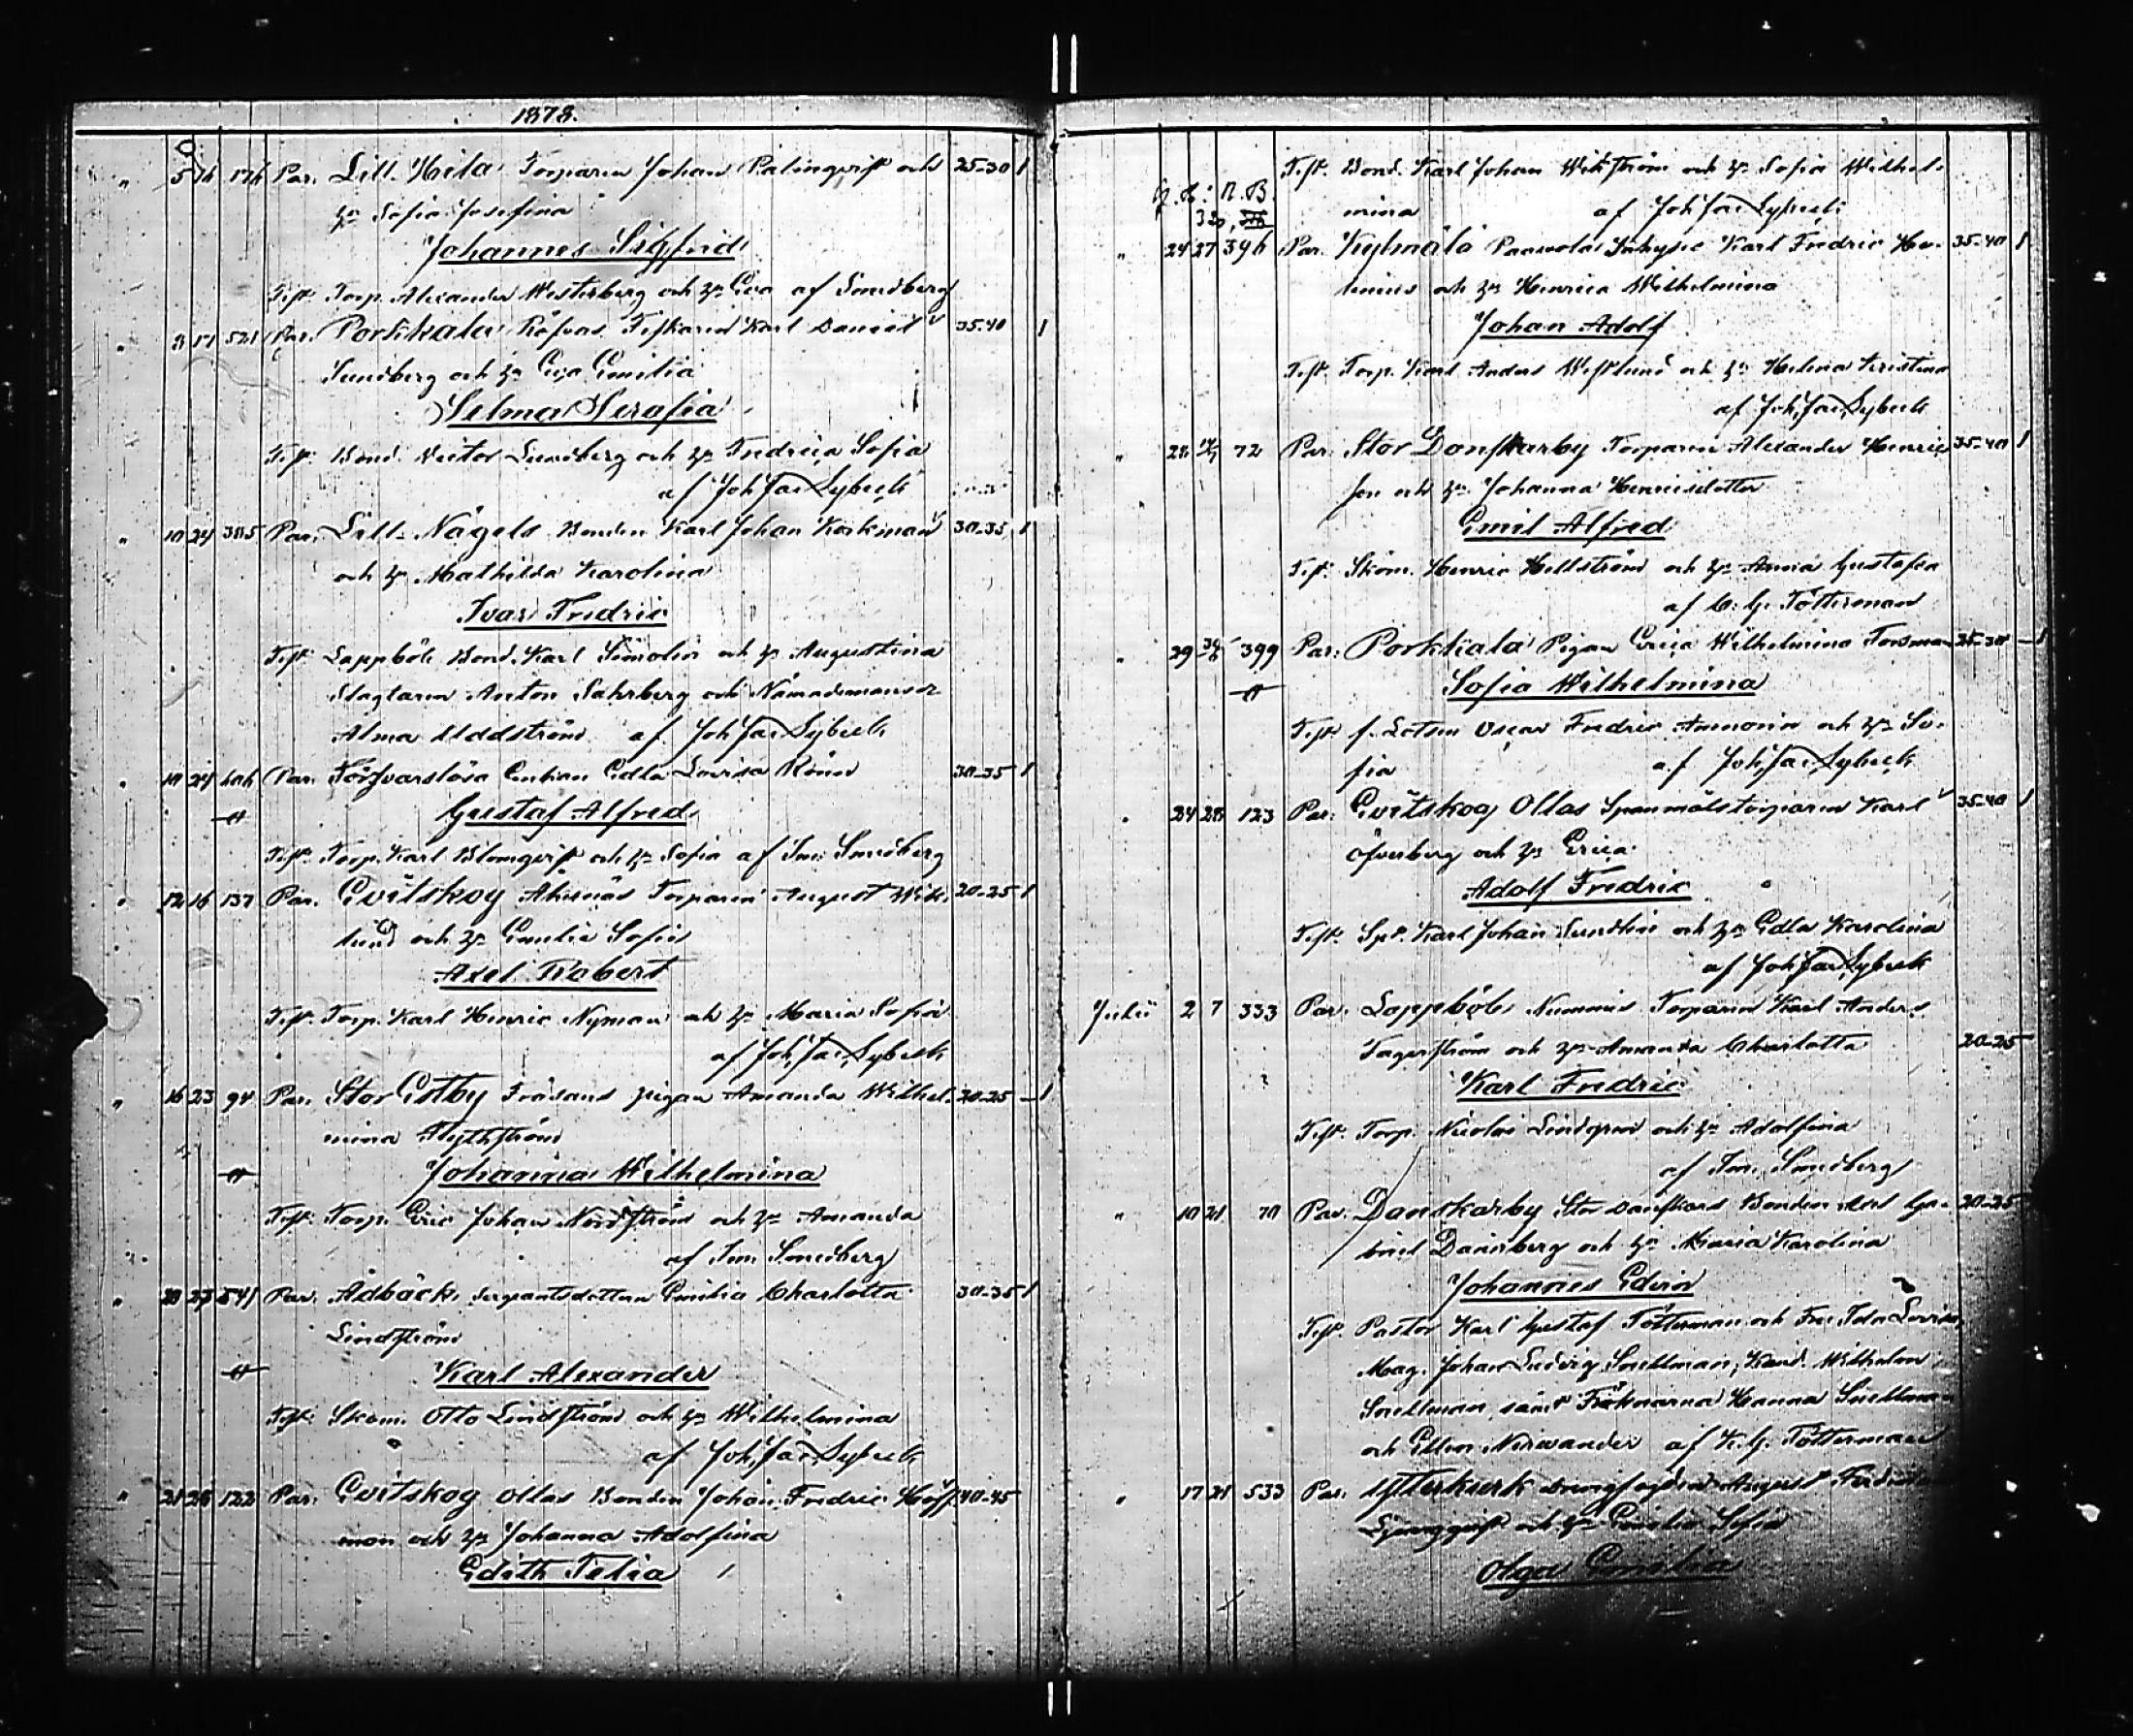 1878.
" 5 16 176 Par. Lill. Hila Torparen Johan Palinqvist och 25-30 1
h. Sofia Josefina
Johannes Sigfrid
Test. Torp. Alexander Westerberg och h. Eva af Smedberg
" 8 17 521 Par. Porkkala Räfvas Fiskaren Karl Daniel 35-40 1
Sundberg och h. Eva Emilia
Selma Serafia
Test. Bond. Victor Lundberg och h. Fredrica Sofia
af Joh Jac Lybeck
" 10 24 385 Par. Lill. Nägels Bonden Karl Johan Korkman 30-35 1
och h. Mathilda Karolina
Ivar Fredric
Test. Lappböle Bond. Karl Simolin och h. Augustina
Slagtaren Anton Sahrberg och Nämademansd
Alma Uddström af Joh Jac Lybeck
" 10 24 606 Par. Försvarslösa Enkan Edla Lovisa Rönn 30-35 1
Gustaf Alfred
Test. Torp. Karl Blomqvist och h. Sofia af Im. Smedberg
" 12 16 137 Par. Evitskog Ahrnäs Torparen August Wik- 20-25 1
lund och h. Emilia Sofia
Axel Robert
Test. Torp. Karl Henric Nyman och h. Maria Sofia
af Joh. Jac. Lybeck
" 16 23 94 Par. Stor Estby Fräsans pigan Amanda Wilhel- 20-25 1
mina Flythström
Johanna Wilhelmina
Test. Torp. Eric Johan Nordström och h. Amanda
af Im. Smedberg
" 20 23 541 Par. Ådbäck, Sergeantsdottren Emilia Charlotta 30-35 1
Lindström
Karl Alexander
Test. Skom. Otto Lindström och h. Wilhelmina
af Joh, Jac. Lybeck
" 21 28 122 Par. Evitskog Ollas Bonden Johan Fredric Hoff- 40-45
mon och h. Johanna Adolfina
Edith Felia
Test. Bond. Karl Johan Wikström och h. Sofia Wilhel-
mina af Joh Jac Lybeck
" 24 27 396 Par. Kylmälä Paavola Inhyse Karl Fredric He- 35-40 1
lenius och h. Henrica Wilhelmina
Johan Adolf
Test. Torp. Karl Anders Westlund och h. Helena Kristina
af Joh, Jac, Lybeck
" 28 14/7 72 Par. Stor Danskarby Torparen Alexander Henrics 35-40 1
son och h. Johanna Henricsdotter
Emil Alfred
Test. Skom. Henric Hellström och h. Anna Gustafva
af C. G. Tötterman
" 29 30/6 399 Par. Porkkala Pigan Erica Wilhelmina Forsman 25-30 1
Sofia Wilhelmina
Test. f. Lotsen Oscar Fredric Ammorin och h. So-
fia af Joh, Jac, Lybeck
" 24 28 123 Par. Evitskog Ollas Spanmålstorparen Karl 35-40 1
Öfverberg och h. Erica
Adolf Fredric
Test. Spt. Karl Johan Sundlin och h. Edla Karolina
af Joh Jac Lybeck
Julii 2 7 333 Par. Lappböle Nummis Torparen Karl Anders
Fagerström och h. Amanda Charlotta 20-25
Karl Fredric
Test. Torp. Nicolai Lindqren och h. Adolfina
af Im. Smedberg
" 10 21 70 Par. Danskarby Stor Danskars Bonden Axel Ga- 20-25
briel Dannberg och h. Maria Karolina
Johannes Edvin
Test. Pastor Karl Gustaf Tötterman och Fru Ida Lovisa,
Mag. Johan Ludvig Snellman, Kand. Wilhelm
Snellman, samt Fröknarna Hanna Snellman
och Ellen Nervander af K. G. Tötterman
" 17 21 533 Par. Ytterkurk August Ferdinand
Ljungqvist och h. Emilia Sofia
Olga Emilia